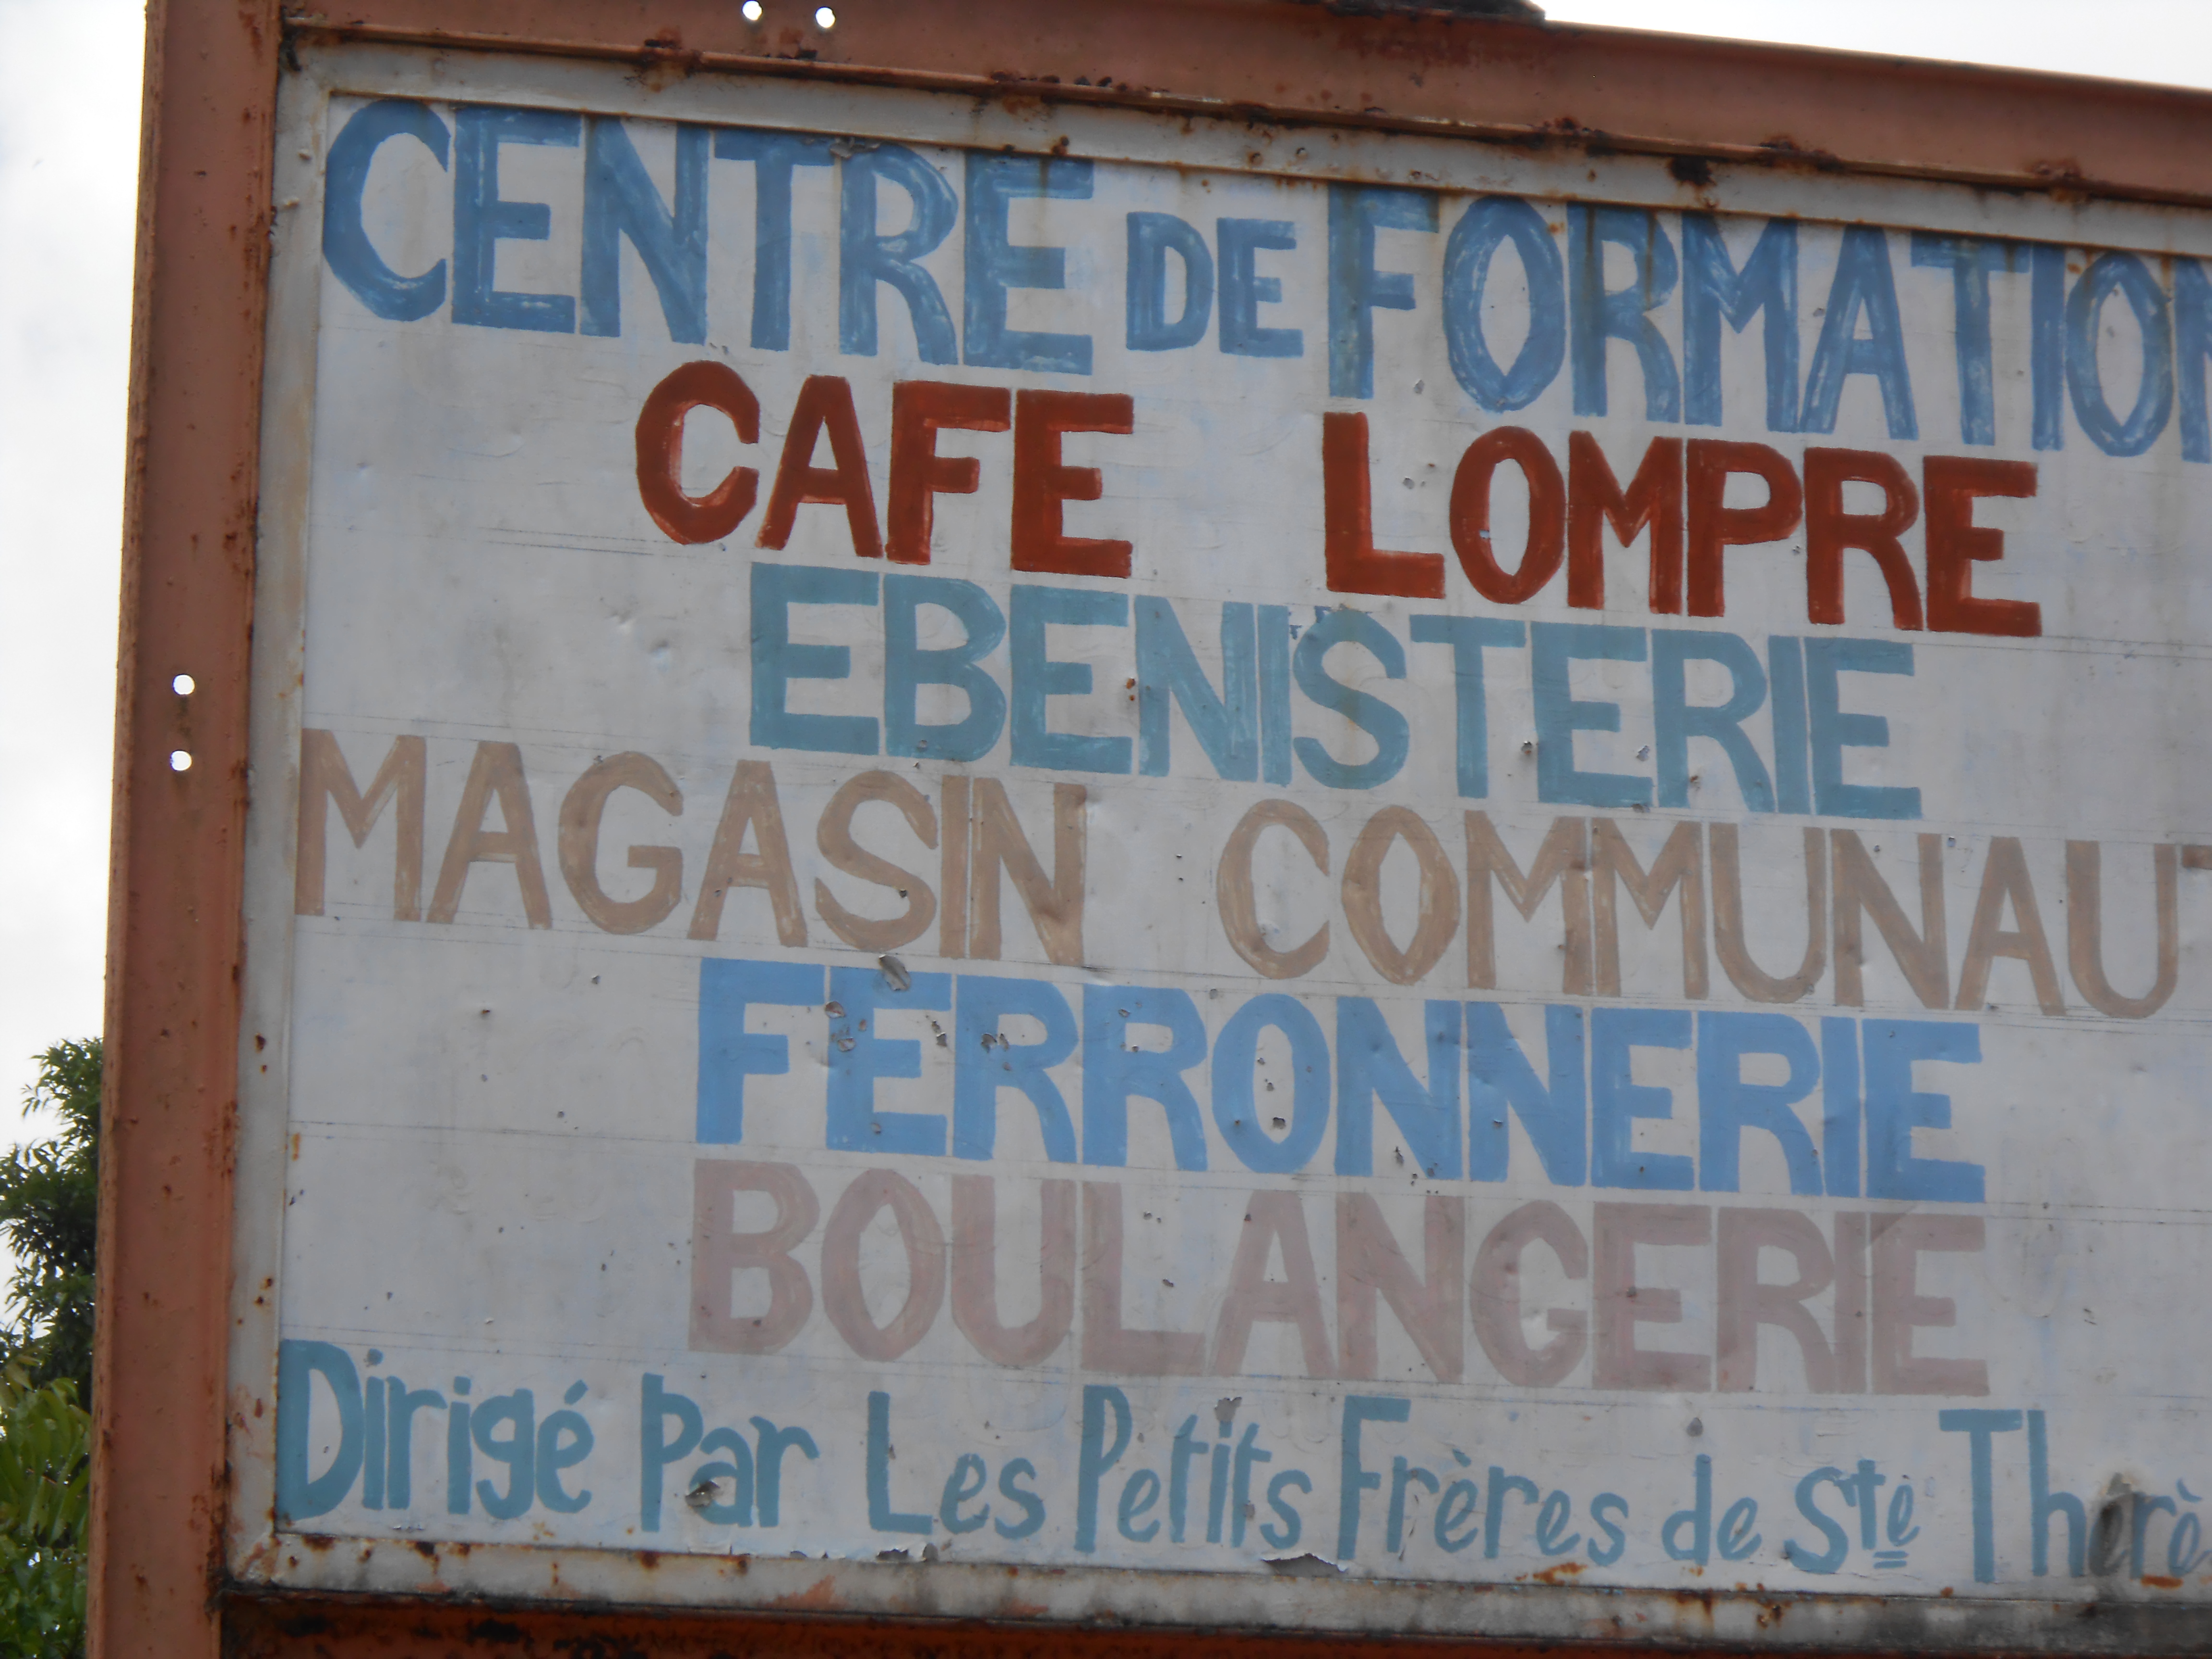 CENTRE DE FORMATION
CAFE LOMPRE
EBENISTERIE
MAGASIN COMMUNAUT
FERRONNERIE
BOULANGERIE
Dirigé Par Les Petits Frères de Ste Thérè